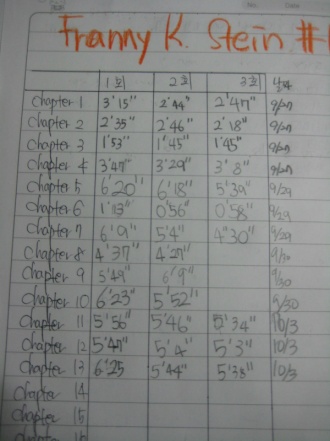 Franny K. Stein #1
1회 2회 3회 날짜
Chapter 1 3'15" 2'44" 2'47" 9/27
Chapter 2 2'35" 2'46" 2'18" 9/27
Chapter 3 1'53" 1'45" 1'45" 9/27
Chapter 4 3'47" 3'29" 3'8" 9/27
Chapter 5 6'20" 6'18" 5'39" 9/29
Chapter 6 1'13" 0'56" 0'58" 9/29
Chapter 7 6'9" 5'4" 4'30" 9/29
Chapter 8 4'37" 4'27" 9/30
Chapter 9 5'49" 6'9" 9/30
Chapter 10 6'23" 5'52" 9/30
Chapter 11 5'56" 5'46" 5'34" 10/3
Chapter 12 5'47" 5'4" 5'3" 10/3
Chapter 13 6'25 5'44" 5'38" 10/3
Chapter 14
Chapter 15